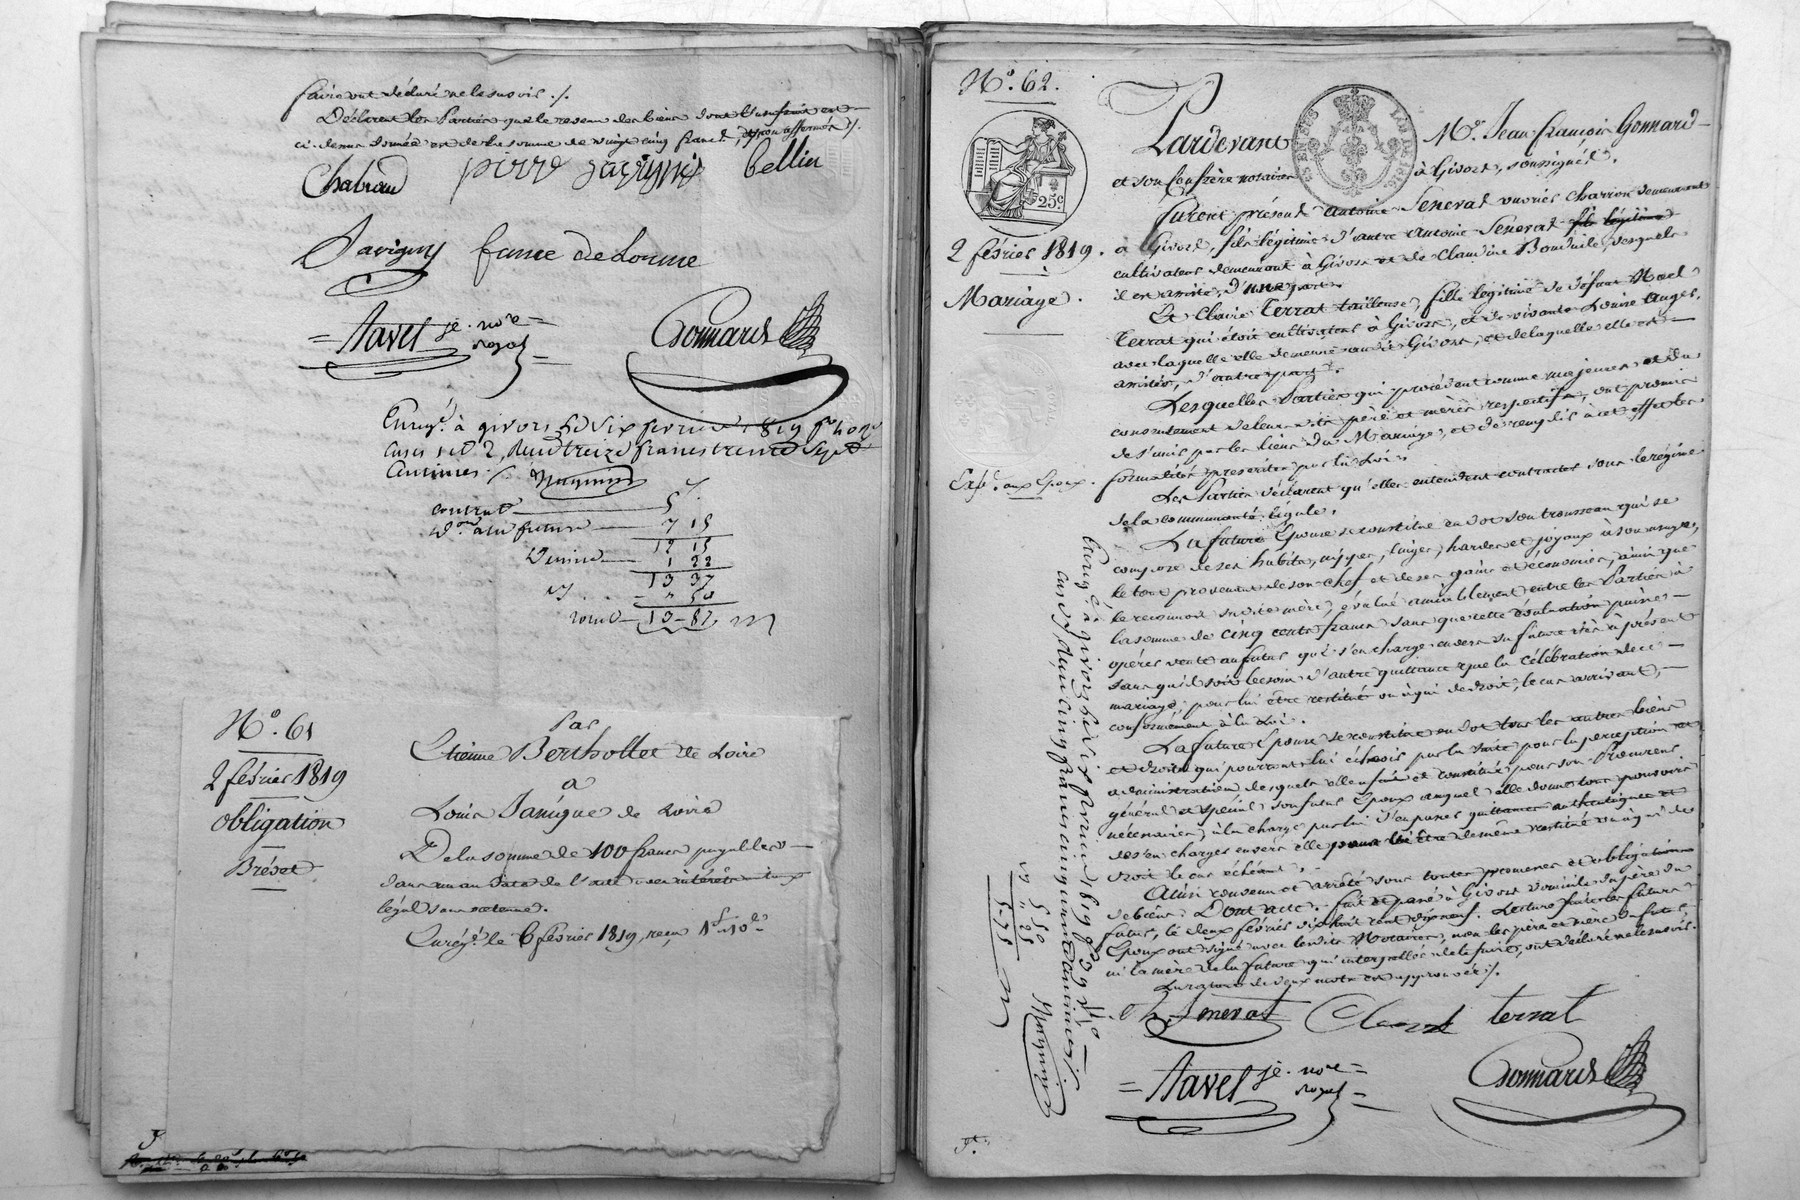 faire ont déclaré ne le savoir ./.
Déclarent les Parties que le revenu des biens dont l'usufruit est
ci-dessus donnée est de la somme de vingt cinq francs,
Chatrain pierre bellin
Savigny femme delorme
= Navel je. nore =
royal =
Gonnard
Enregé. à givors le six fevrier 1819 fo
cases 1 et 2, Reçu treize francs trente Sept
Centimes ./.
contrat — 5 "
don. à la future — 7 15
12 15
Dixième — 1 22
13 37
" 50
total — 13 - 87
No. 61
2 février 1819
Obligation
Brévet
Par
Etienne Berthollet de Loire
a
Louis Janigue de Loire
De la somme de 100 francs payables
dans un an date de l'acte avec intérêts au taux
légal sans retenue.
Enrégé. le 6 février 1819, reçu 1f-10c
No. 62.
25c
2 février 1819.
Mariage.
Expé. aux Epoux.
Pardevant Me. Jean françois Gonnard
et son Confrère notaires à Givors, soussignés,
furent présents Antoine Senerat ouvrier Charron demeurant
à Givors, fils légitime d'autre Antoine Senerat fils légitime
cultivateur demeurant à Givors et de Claudine Bouduile, desquels
il est assisté, d'une part.
Et Claire Terrat tailleuse, fille légitime de défunt Noel
Terrat qui étoit cultivateur à Givors, et de vivante Louise Auger,
avec laquelle elle demeure audit Givors, et de laquelle elle est
assistée, d'autre part.
Lesquelles Parties qui procèdent comme majeures et du
consentement de leursdits père et mères respectifs, ont promis
de s'unir par les liens du Mariage, et de remplir à cet effet les
formalités prescrites par la Loi.
Les Parties déclarent qu'elles entendent contracter sous le régime
de la communauté légale.
La future Epouse se constitue en dot son trousseau qui se
compose de ses habits, nippes, linges, hardes et joyaux à son usage,
le tout provenant de son chef et de ses gains et économies, ainsi que
le reconnoit sadite mère, évalué amiablement entre les Parties à
la somme de cinq cents francs sans que cette évaluation puisse
opérer vente au futur qui s'en charge envers sa future dès à présent
sans qu'il soit besoin d'autre quittance que la célébration de ce
mariage, pour lui être restitué ou à qui de droit, le cas arrivant,
conformément à la Loi.
La future Epouse se constitue en dot tous les autres biens
et droits qui pourront lui échoir par la suite pour la perception et
administration desquels elle fait et constitue pour son Procureur
général et spécial son futur Epoux auquel elle donne tous pouvoirs
nécessaires, à la charge par lui d'en passer quittances authentiques et
de s'en charger envers elle pour lui être de même restitué ou à qui de
droit le cas échéant.
Ainsi convenu et arrêté sous toutes promesses et obligations
de biens. Dont acte. fait et passé à Givors domicile du père du
futur, le deux février dix huit cent dix neuf. Lecture faite les futurs
Epoux ont signé avec lesdits Notaires, non les père et mère du futur
ni la mère de la future qui interpellés de le faire, ont déclaré ne le savoir.
La rature de deux mots est approuvée ./.
Senerat Claire terrat
= Navel je. nore =
royal =
Gonnard
Enregé. à givors le six fevrier 1819 fo 39 Vo
case 7, Reçu cinq francs cinquante centimes ./.
5 50
" 25
5-75